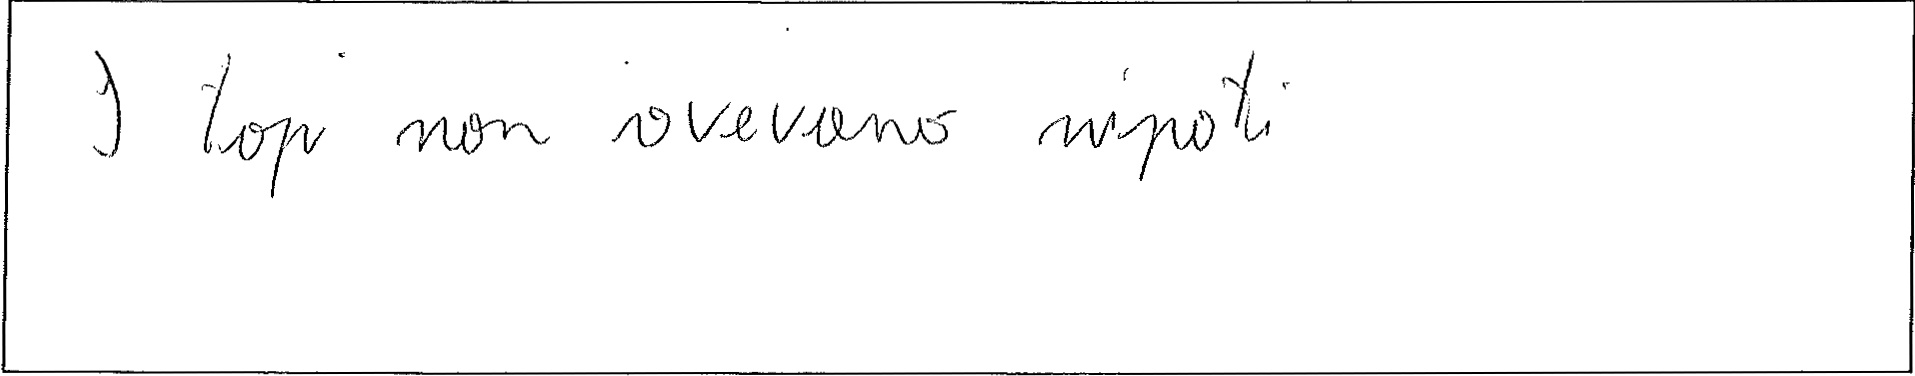 I topi non avevano nipoti